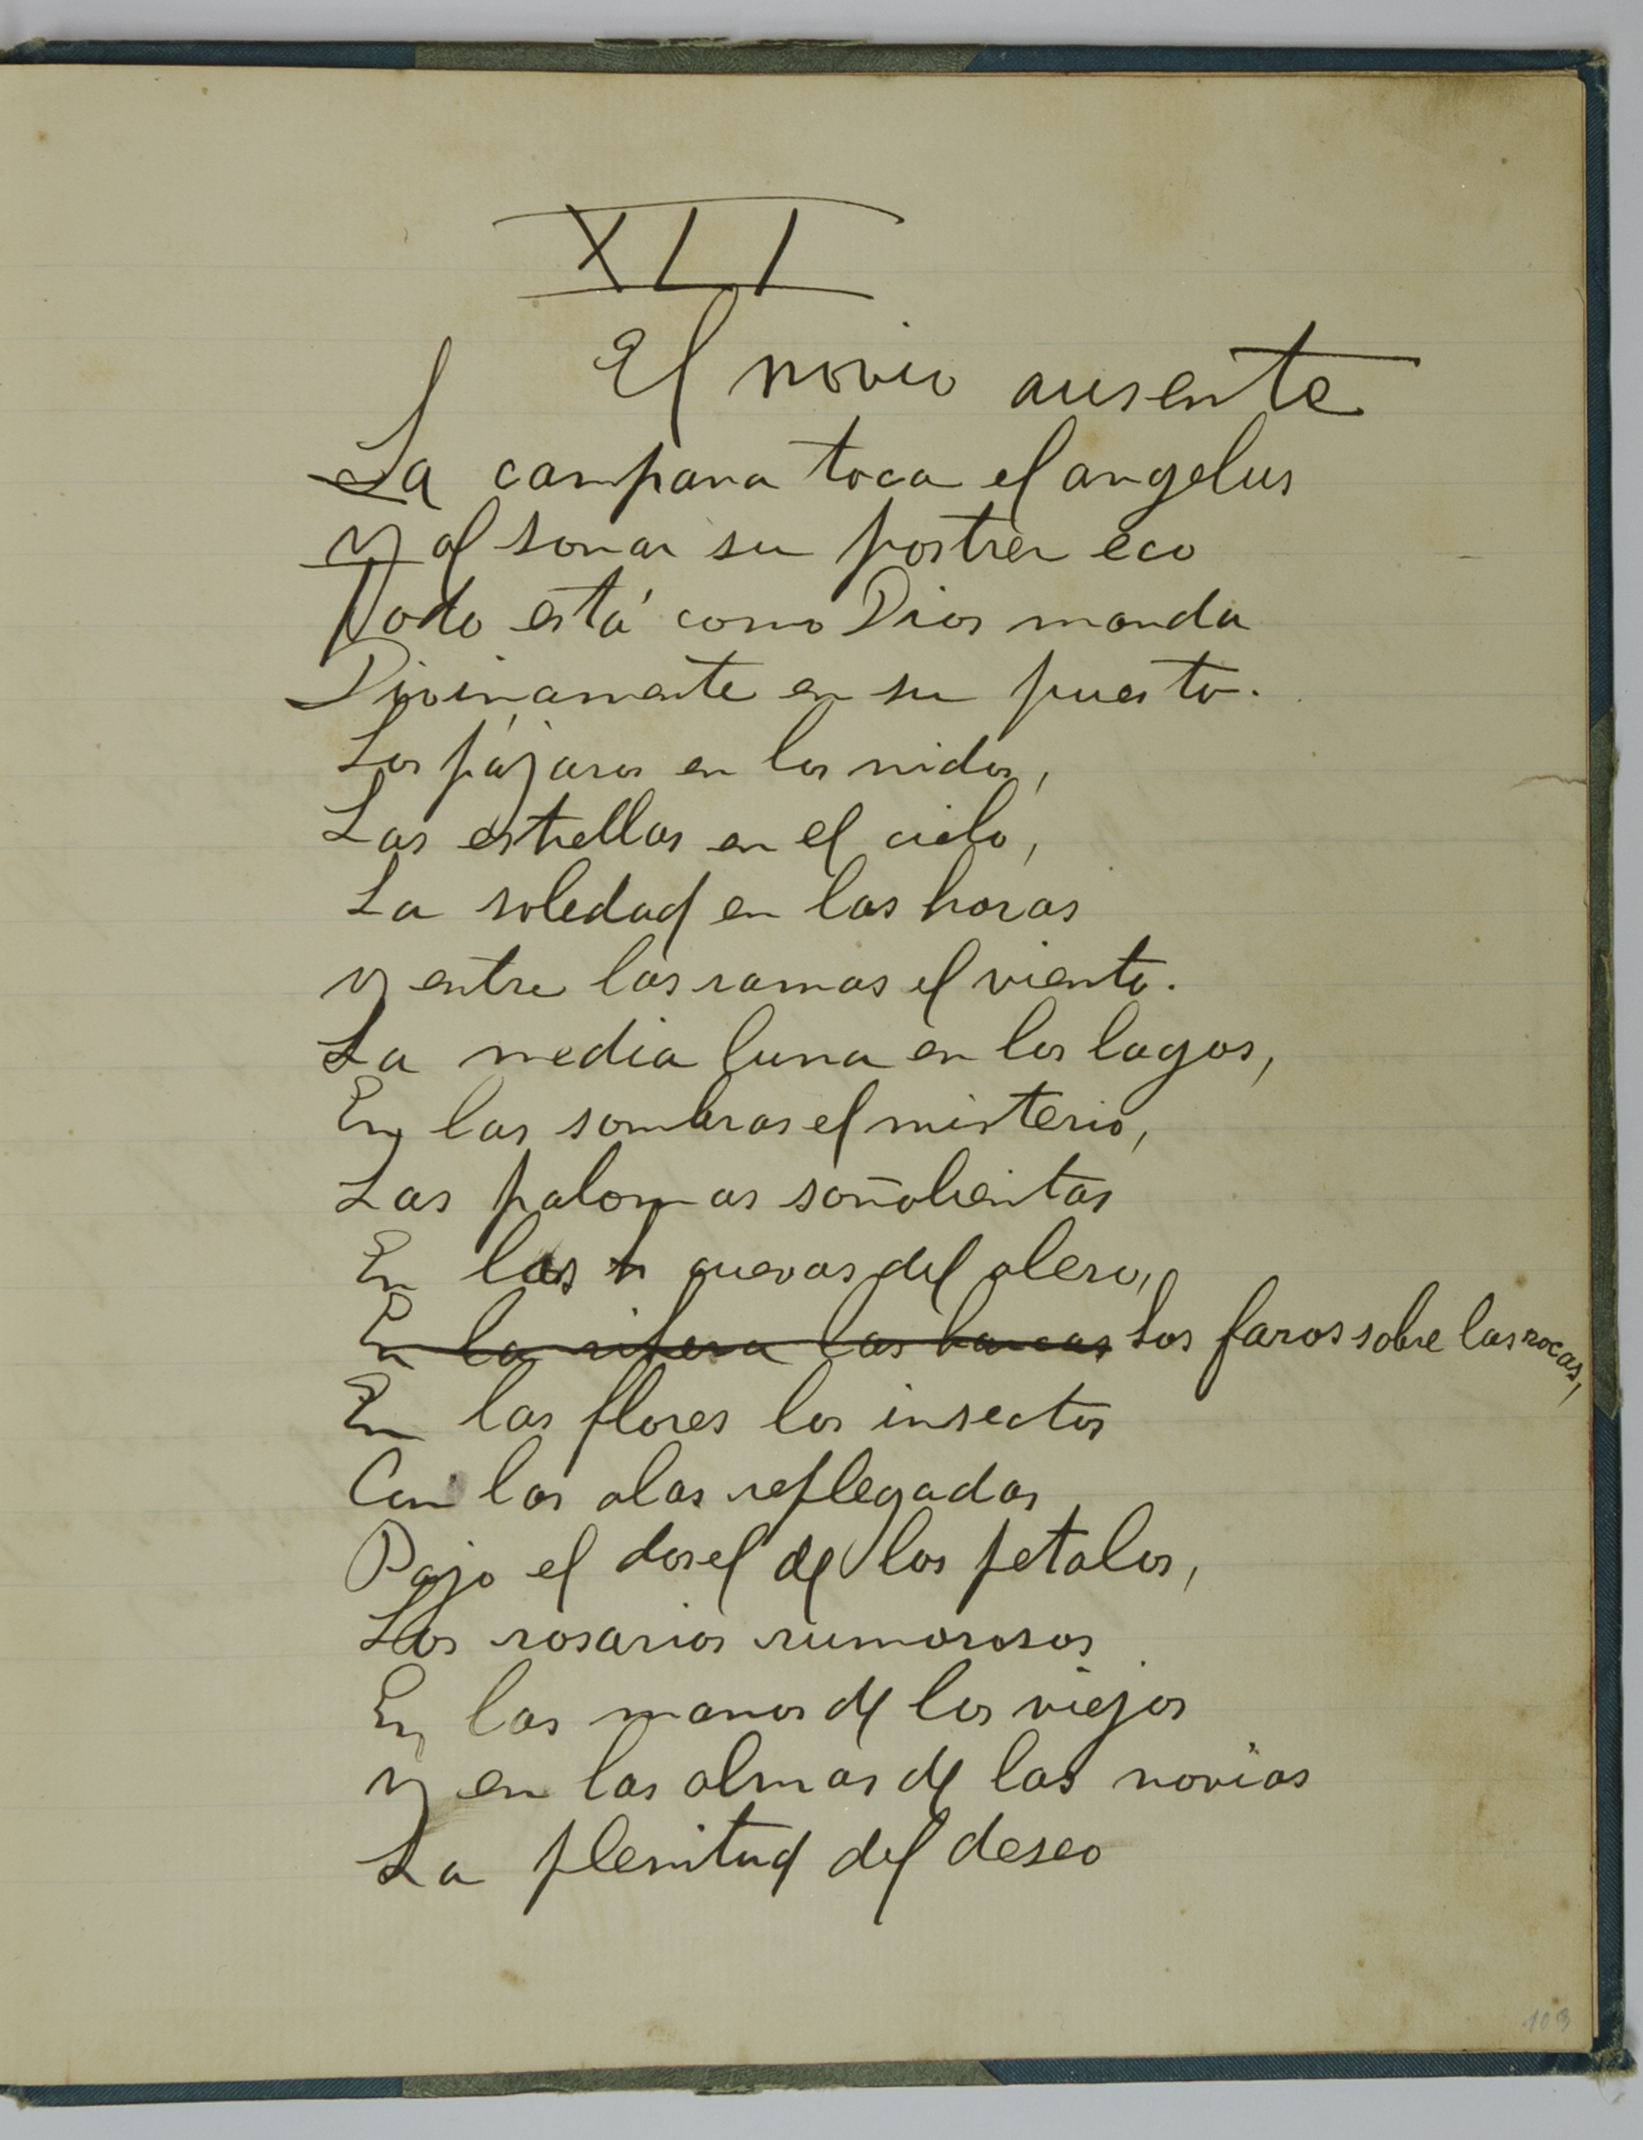 XLI
El novio ausente
La campana toca el angelus
y al sonar su postrer eco
Todo está como Dios manda
Divinamente en su puesto.
Los pájaros en los nidos,
Las estrellas en el cielo,
La soledad en las horas
y entre las ramas el viento.
La media luna en los lagos,
En las sombras el misterio,
Las palomas soñolientas
En las cuevas del alero,
En la ribera las barcas Los faros sobre las rocas,
En las flores los insectos
Con las alas replegadas
Bajo el dosel de los petalos,
Los rosarios rumorosos
En las manos de los viejos
y en las almas de las novias
La plenitud del deseo
103